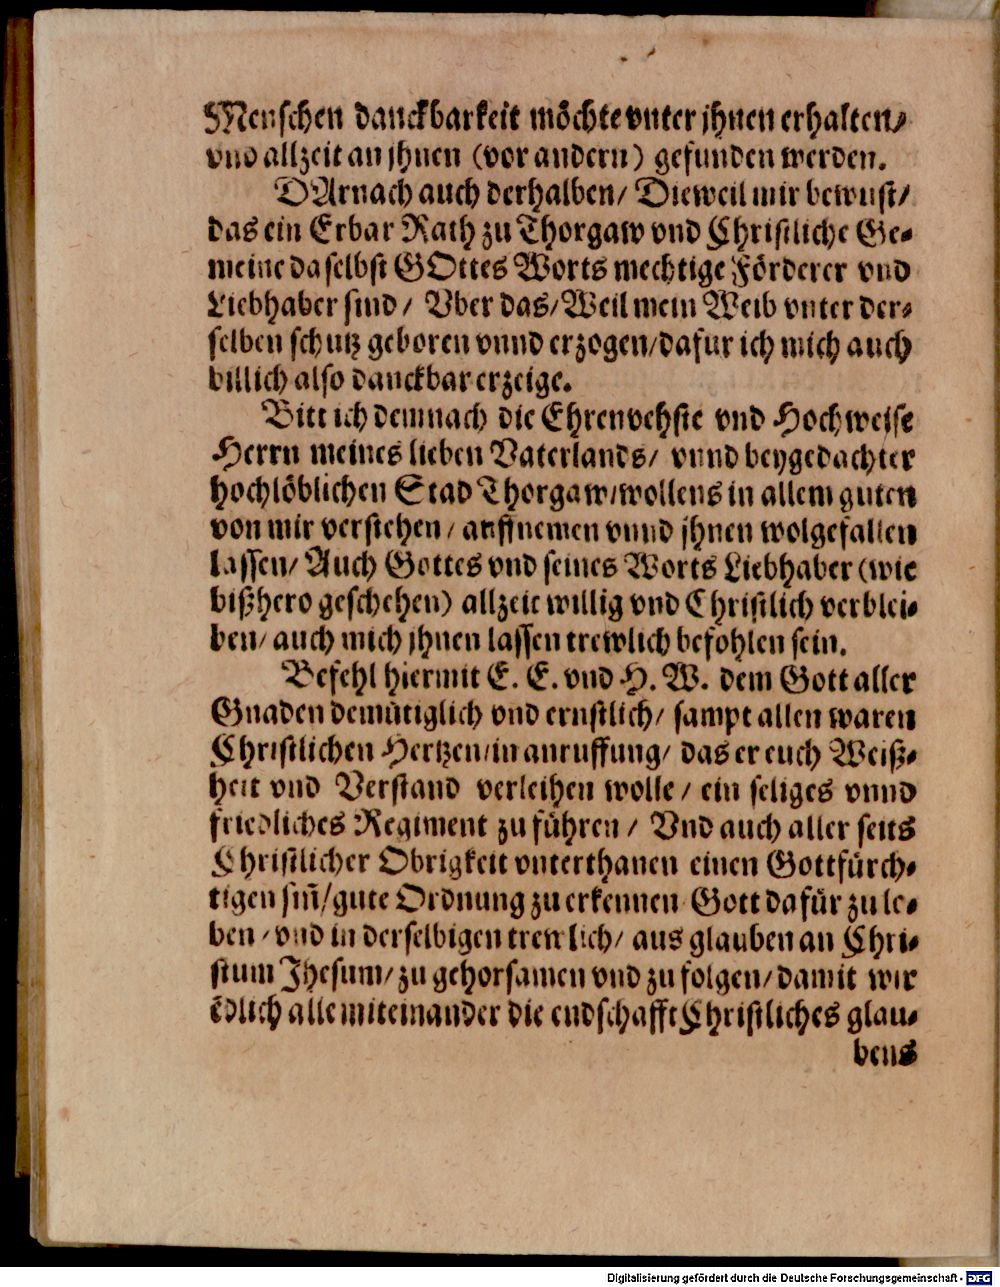 Menschen danckbarkeit möchte vnter jhnen erhalten/
vnd allzeit an jhnen (vor andern) gefunden werden.
DArnach auch derhalben/ Dieweil mir bewust/
das ein Erbar Rath zu Thorgaw vnd Christliche Ge-
meine daselbst GOttes Worts mechtige Förderer vnd
Liebhaber sind/ Vber das/ Weil mein Weib vnter der-
selben schutz geboren vnnd erzogen/ dafur ich mich auch
billich also danckbar erzeige.
Bitt ich demnach die Ehrenvehste vnd Hochweise
Herrn meines lieben Vaterlands/ vnnd beygedachter
hochlöblichen Stad Thorgaw/ wollens in allem guten
von mir verstehen/ auffnemen vnnd jhnen wolgefallen
lassen/ Auch Gottes vnd seines Worts Liebhaber (wie
bißhero geschehen) allzeit willig vnd Christlich verblei-
ben/ auch mich jhnen lassen trewlich befohlen sein.
Befehl hiermit E. E. vnd H. W. dem Gott aller
Gnaden demütiglich vnd ernstlich/ sampt allen waren
Christlichen Hertzen/ in anruffung/ das er euch Weiß-
heit vnd Verstand verleihen wolle/ ein seliges vnnd
friedliches Regiment zu führen/ Vnd auch aller seits
Christlicher Obrigkeit vnterthanen einen Gottfürch-
tigen sin̄/ gute Ordnung zu erkennen Gott dafür zu lo-
ben/ vnd in derselbigen trewlich/ aus glauben an Chri-
stum Jhesum/ zu gehorsamen vnd zu folgen/ damit wir
ēdlich alle miteinander die endschafft Christliches glau-
bens
Digitalisierung gefördert durch die Deutsche Forschungsgemeinschaft - DFG